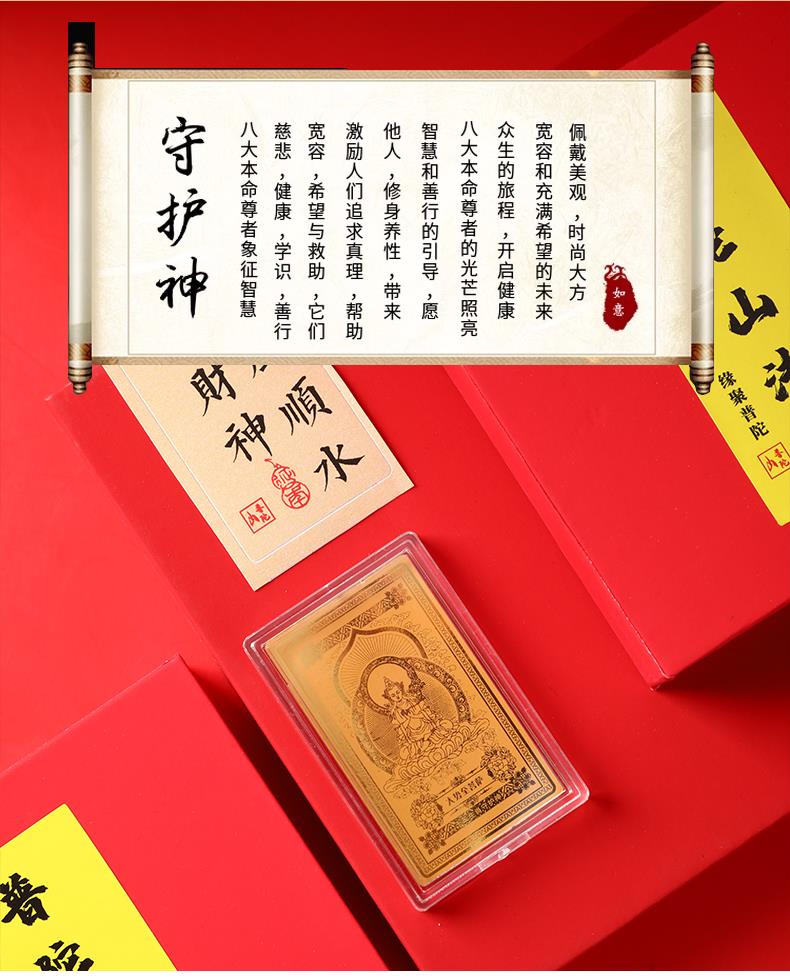 守护神
八大本命尊者象征智慧
慈悲，健康，学识，善行
宽容，希望与救助，它们
激励人们追求真理，帮助
他人，修身养性，带来
智慧和善行的引导，愿
八大本命尊者的光芒照亮
众生的旅程，开启健康
宽容和充满希望的未来
佩戴美观，时尚大方
如意
山
缘聚普陀
普陀山
順水
財神
普陀山
普陀